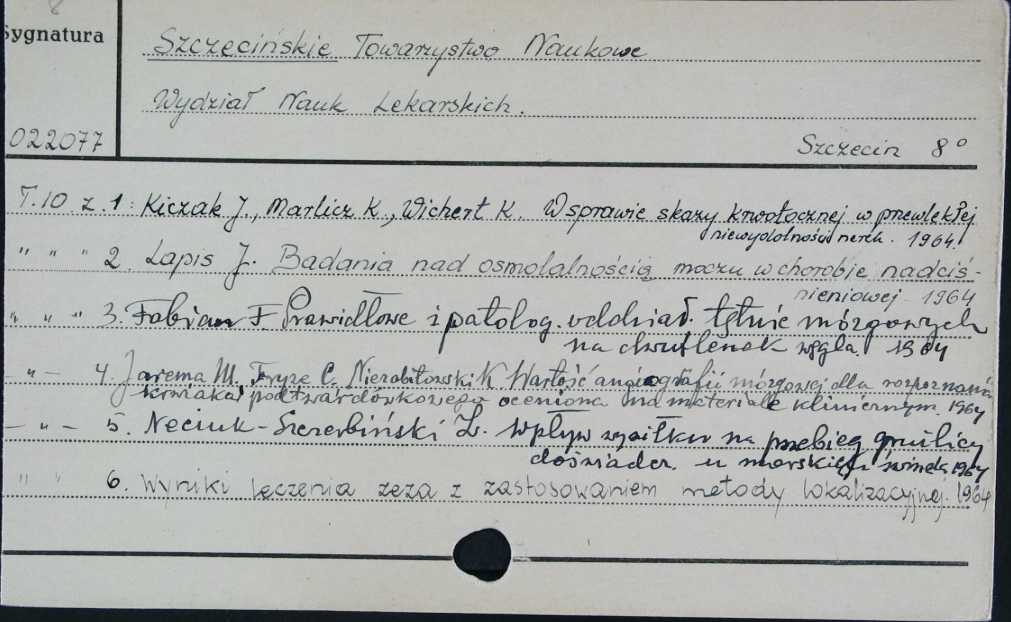 8
Sygnatura
Szczecińskie Towarzystwo Naukowe
Wydział Nauk Lekarskich.
022077
Szczecin 8°
T.10 z. 1: Kiczak J., Marlicz K., Wichert K. W sprawie skazy krwotocznej w przewlekłej
niewydolności nerek. 1964
" " " 2. Lapis J. Badania nad osmolalnością moczu w chorobie nadciś-
nieniowej 1964
" " " 3. Fabian F Prawidłowe i patolog. oddział. tętnic mózgowych
na dwutlenek węgla 1964
- " - 4. Jarema M, Fryze C. Nierabitowski K Wartość angiografii mózgowej dla rozpoznania
krwiaka podtwardówkowego oceniona na materiale klinicznym 1964
- " - 5. Neciuk-Szczerbiński Z. Wpływ wysiłku na przebieg gruźlicy
doświadcz. u morskich świnek 1964
" " 6. Wyniki leczenia zeza z zastosowaniem metody lokalizacyjnej. 1964